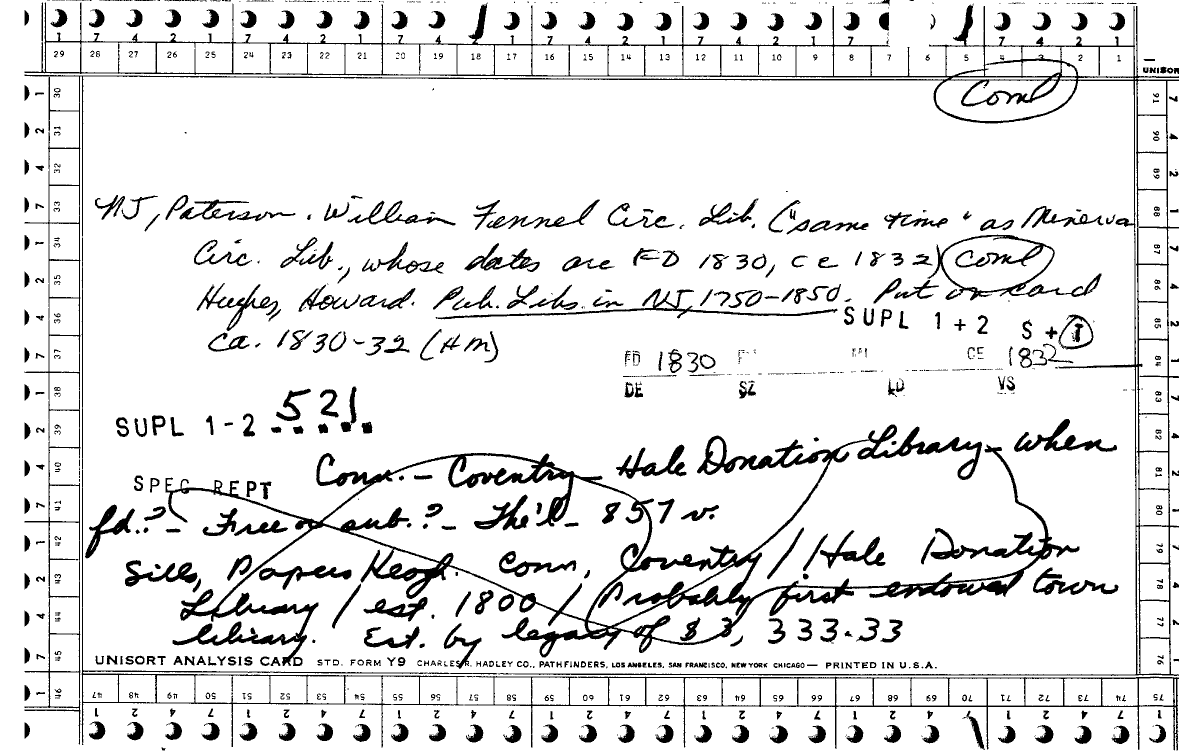 1 7 4 2 1 7 4 2 1 7 4 2 1 7 4 2 1 7 4 2 1 7 4 2 1
29 28 27 26 25 24 23 22 21 20 19 18 17 16 15 14 13 12 11 10 9 8 7 6 5 4 3 2 1
UNISOR
Coml
NJ, Paterson. William Fennel Circ. Lib. ("same time" as Minerva
Circ. Lib., whose dates are FD 1830, CE 1832) Coml
Hughes, Howard. Pub. Libs. in NJ, 1750-1850. Put on card
ca. 1830-32 (HM)
SUPL 1+2 S + 1
FD 1830 MI CE 1832
DE SZ LD VS
SUPL 1-2 521
SPEC REPT
Conn. - Coventry - Hale Donation Library - when
fd.? - Free or sub.? - The'l - 857 v.
Sills, Papers/Keogh. Conn, Coventry / Hale Donation
Library / est. 1800 / Probably first endowed town
library. Est. by legacy of $3,333.33
UNISORT ANALYSIS CARD STD. FORM Y9 CHARLES R. HADLEY CO., PATHFINDERS, LOS ANGELES, SAN FRANCISCO, NEW YORK CHICAGO — PRINTED IN U.S.A.
30 31 32 33 34 35 36 37 38 39 40 41 42 43 44 45 46
91 90 89 88 87 86 85 84 83 82 81 80 79 78 77 76 75
47 48 49 50 51 52 53 54 55 56 57 58 59 60 61 62 63 64 65 66 67 68 69 70 71 72 73 74
1 2 4 7 1 2 4 7 1 2 4 7 1 2 4 7 1 2 4 7 1 2 4 7 1 2 4 7